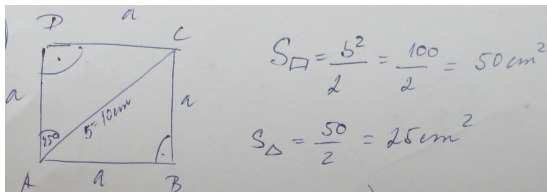 a
D C
a a
45° b=10cm
A a B
S□ = b²/2 = 100/2 = 50cm²
S△ = 50/2 = 25cm²